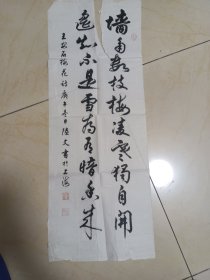 墙角数枝梅凌寒独自開
遥知不是雪為有暗香来
王安石梅花诗庚午冬日陆文书於上海